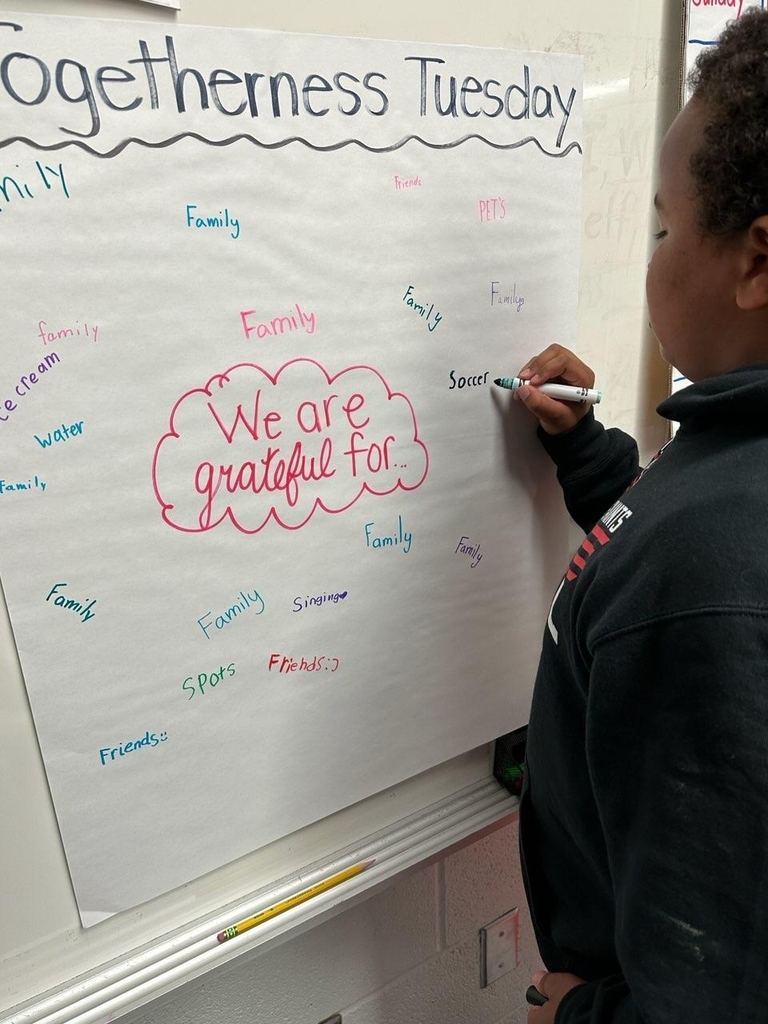 Togetherness Tuesday
Family
Friends
PET'S
Family
Family
Family
family
Family
ce cream
Soccer
water
We are
grateful for...
Family
Family
Family
Family
Family
Singing
SPOtS
Friends:)
Friends